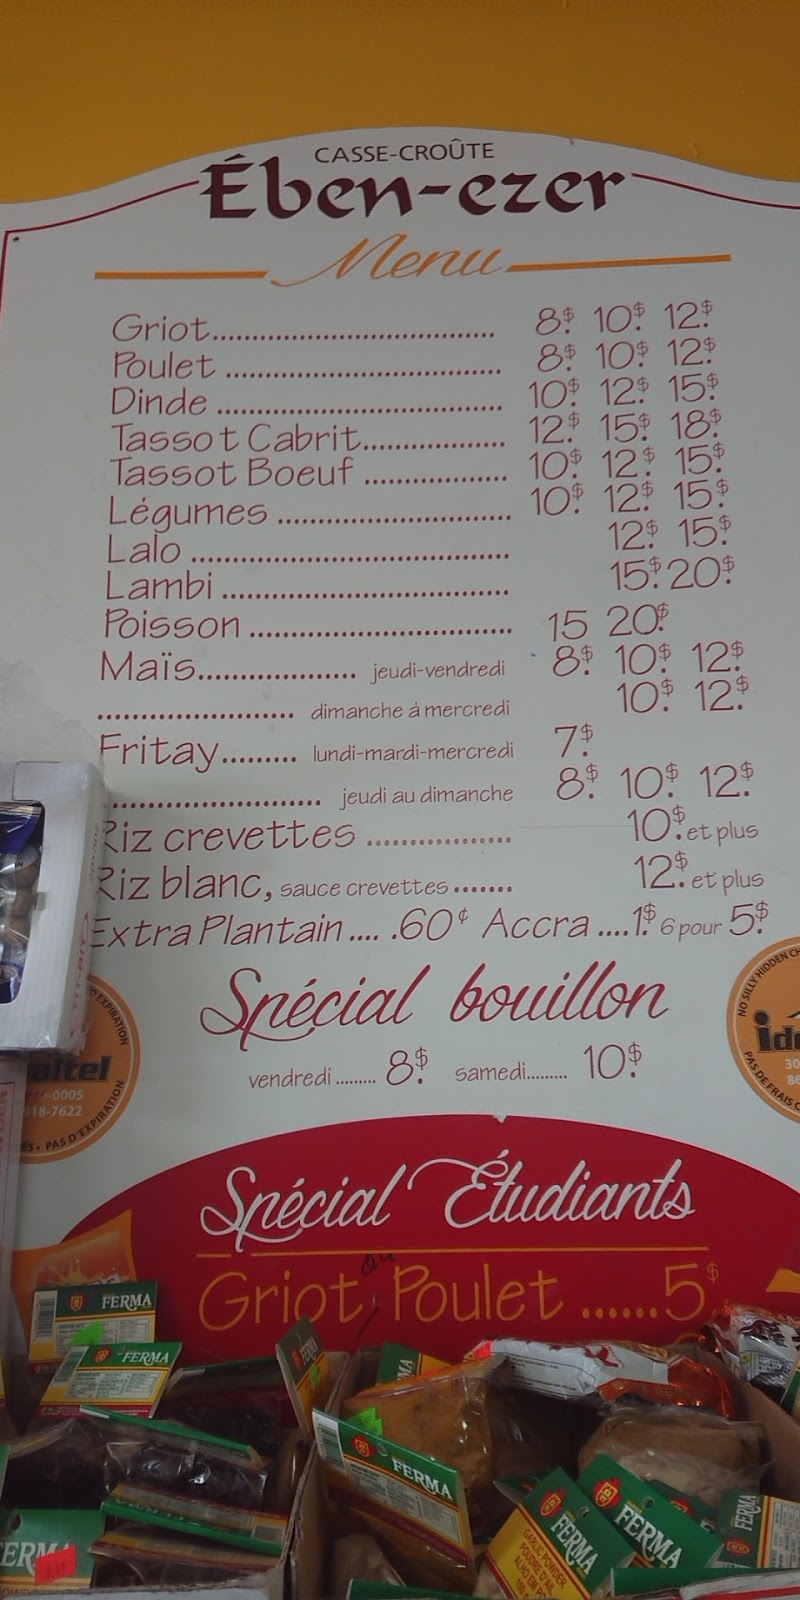 CASSE-CROÛTE
Ében-ezer
Menu
Griot.................... 8$ 10$ 12$
Poulet .................... 8$ 10$ 12$
Dinde .................... 10$ 12$ 15$
Tassot Cabrit............ 12$ 15$ 18$
Tassot Boeuf ............ 10$ 12$ 15$
Légumes ................ 10$ 12$ 15$
Lalo .................... 12$ 15$
Lambi .................... 15$ 20$
Poisson .................... 15 20$
Maïs............ jeudi-vendredi 8$ 10$ 12$
............ dimanche à mercredi 10$ 12$
Fritay......... lundi-mardi-mercredi 7$
............ jeudi au dimanche 8$ 10$ 12$
Riz crevettes ............ 10$ et plus
Riz blanc, sauce crevettes ....... 12$ et plus
Extra Plantain .... .60¢ Accra ....1$ 6 pour 5$
Spécial bouillon
vendredi ......... 8$ samedi......... 10$
EXPIRATION
918-7622
PAS D'EXPIRATION
NO SILLY HIDDEN
PAS DE FRAIS
Spécial Étudiants
Griot ou Poulet ......5$
FERMA
FERMA
FERMA
FERMA
FERMA
FERMA
GARLIC POWDER
POUDRE D'AIL
AJO EN POLVO